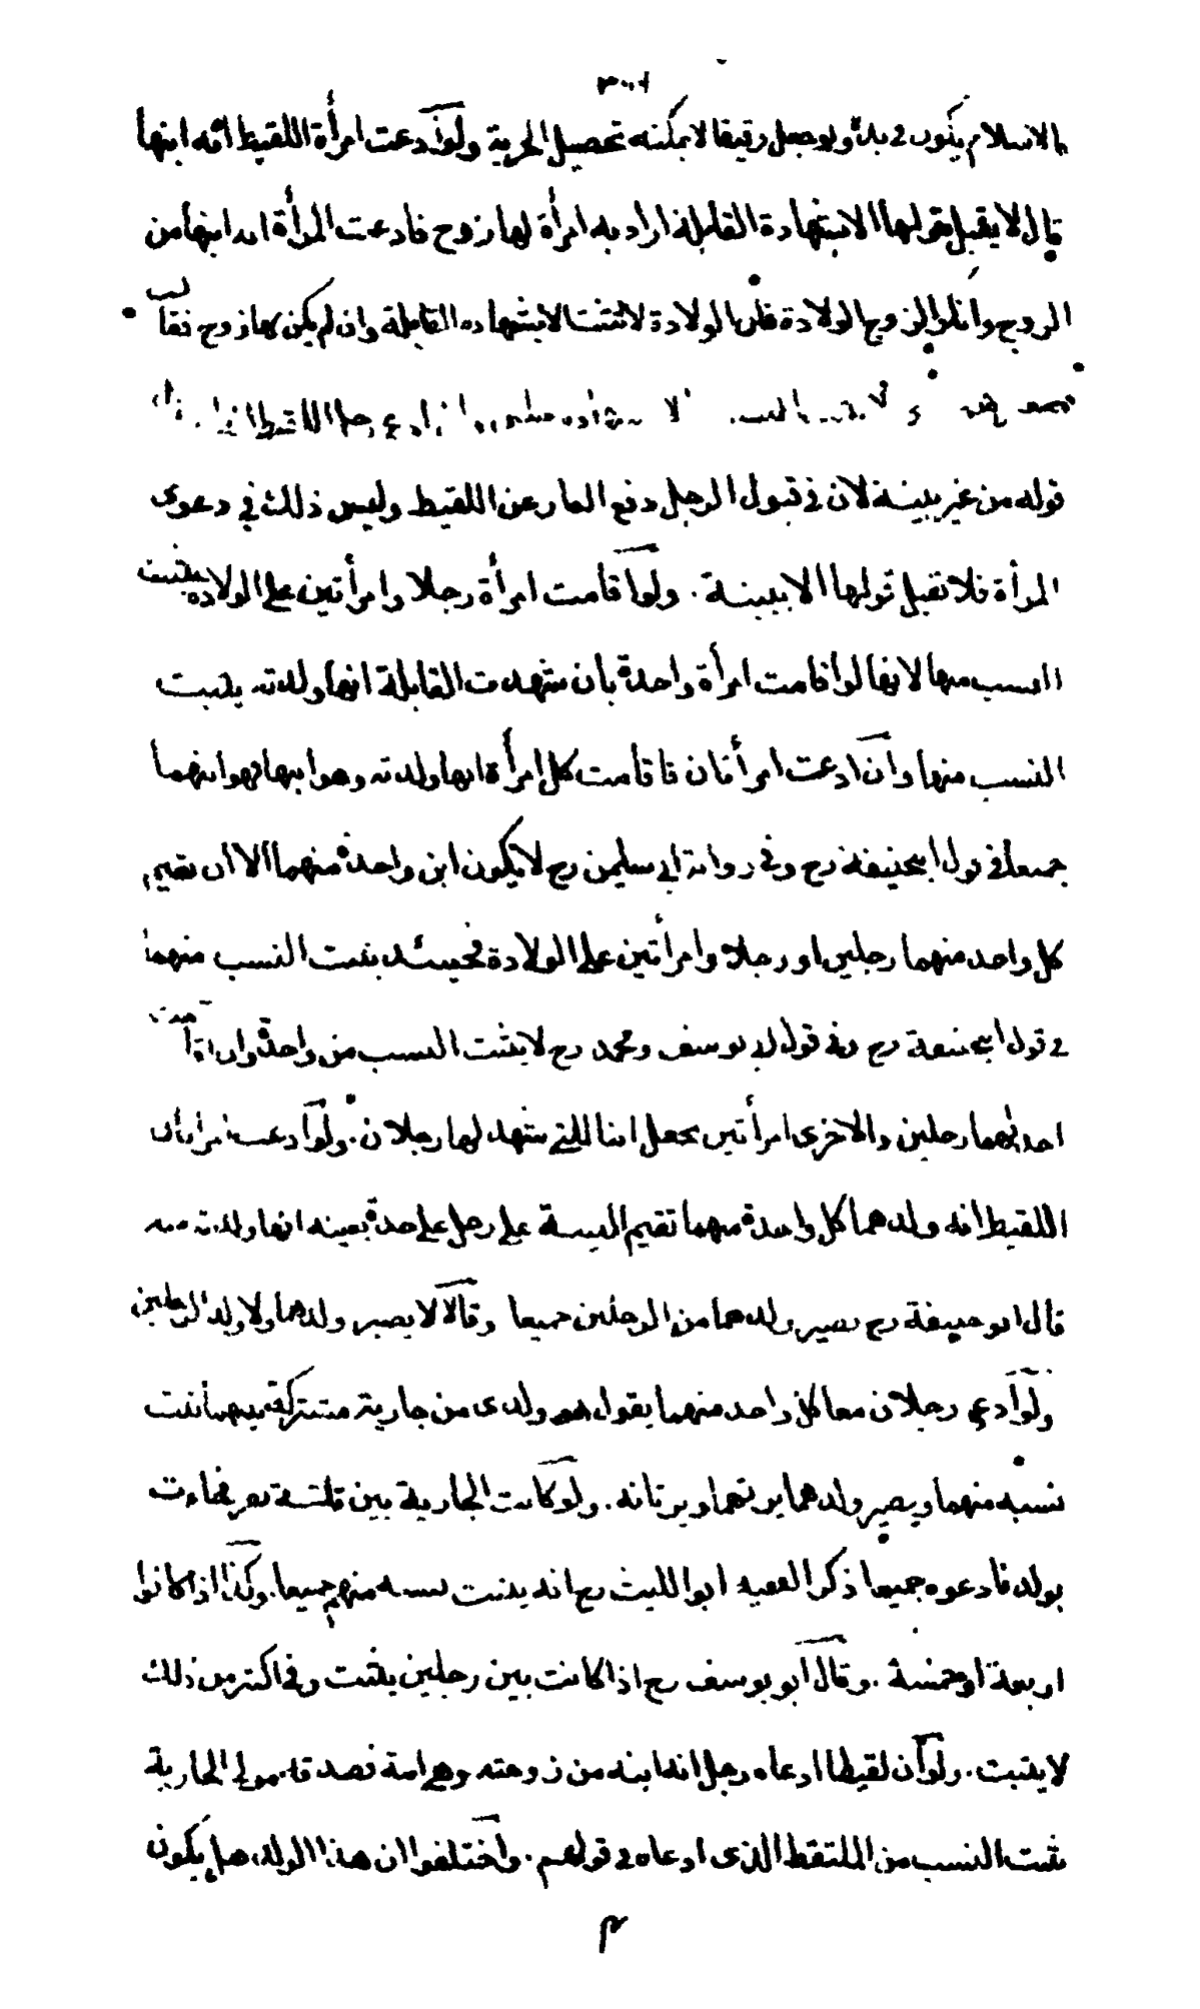 بالاسلام يكون في يده ولو جعل رقيقا لا يمكنه تحصيل الحرية ولو ادعت امرأة اللقيط انه ابنها
قال لا يقبل قولها الا بشهادة القابلة اراد به امرأة لها زوج فادعت المرأة انه ابنها من
الزوج وانكر الزوج الولادة فان الولادة لا تثبت الا بشهادة القابلة وان لم يكن لها زوج فقالت
لا ادعى رجل اللقيط
قوله من غير بينة لان في قبول الرجل دفع العار عن اللقيط وليس ذلك في دعوى
المرأة فلا تقبل قولها الا ببينة . ولو اقامت امرأة رجلا وامرأتين على الولادة يثبت
النسب منها لانها لو اقامت امرأة واحدة بان شهدت القابلة انها ولدته يثبت
النسب منها وان ادعت امرأتان فاقامت كل إمرأة انها ولدته وهو ابنها فهو ابنهما
جميعا في قول ابيحنيفة رح وفي رواية ابي سليمن رح لا يكون ابن واحدة منهما الا ان تقيم
كل واحد منهما رجلين او رجلا وامرأتين على الولادة فحينئذ يثبت النسب منهما
في قول ابيحنيفة رح وفي قول ابي يوسف ومحمد رح لا يثبت النسب من واحدة وان اقامت
احديهما رجلين والاخرى امرأتين يجعل ابنا للتي شهد لها رجلان . ولو ادعت امرأتان
اللقيط انه ولدهما كل واحدة منهما تقيم البينة على رجل على حدة بعينه انها ولدته منه
قال ابو حنيفة رح يصير ولدهما من الرجلين جميعا وقالا لا يصير ولدهما ولا ولد الرجلين
ولو ادعى رجلان معا كل واحد منهما يقول هو ولدى من جارية مشتركة بينهما يثبت
نسبه منهما ويصير ولدهما يرثهما ويرثانه . ولو كانت الجارية بين ثلثة نفر فجاءت
بولد فادعوه جميعا ذكر الفقيه ابو الليث رح انه يثبت نسبه منهم جميعا . وكذا اذا كانوا
اربعة او خمسة . وقال ابو يوسف رح اذا كانت بين رجلين يثبت وفي اكثر من ذلك
لا يثبت . ولو ان لقيطا ادعاه رجل انه ابنه من زوجته وهي امة فصدقه مولى الجارية
يثبت النسب من الملتقط الذى ادعاه في قولهم . واختلفوا ان هذا الولد هل يكون